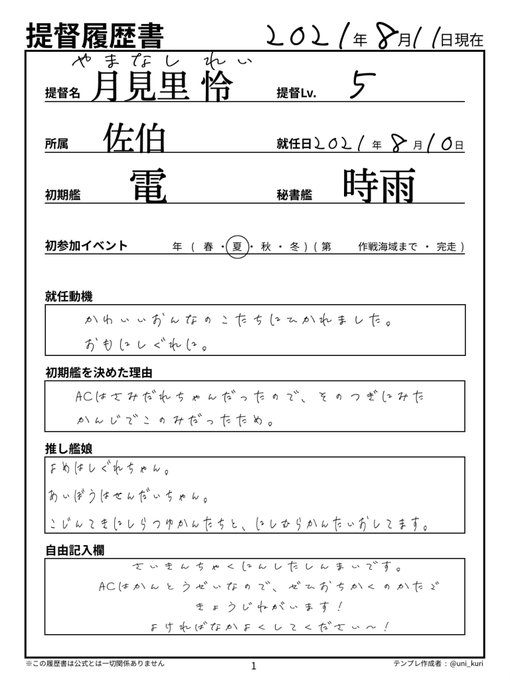 提督履歴書 2021年8月11日現在
やまなし れい
提督名 月見里 怜 提督Lv. 5
所属 佐伯 就任日2021年8月10日
初期艦 電 秘書艦 時雨
初参加イベント 年 ( 春 ・ 夏 ・ 秋 ・ 冬 ) ( 第 作戦海域まで ・ 完走 )
就任動機
かわいいおんなのこたちにひかれました。
おもにしぐれに。
初期艦を決めた理由
ACはさみだれちゃんだったので、そのつぎにみた
かんじでこのみだったため。
推し艦娘
よめはしぐれちゃん。
あいぼうはせんだいちゃん。
こじんてきにしらつゆかんたちと、にしむらかんたいおしてます。
自由記入欄
さいきんちゃくにんしたしんまいです。
ACはかんとうぜいなので、ぜひおちかくのかたご
きょうじねがいます!
よければなかよくしてください〜!
※この履歴書は公式とは一切関係ありません 1 テンプレ作成者:@uni_kuri